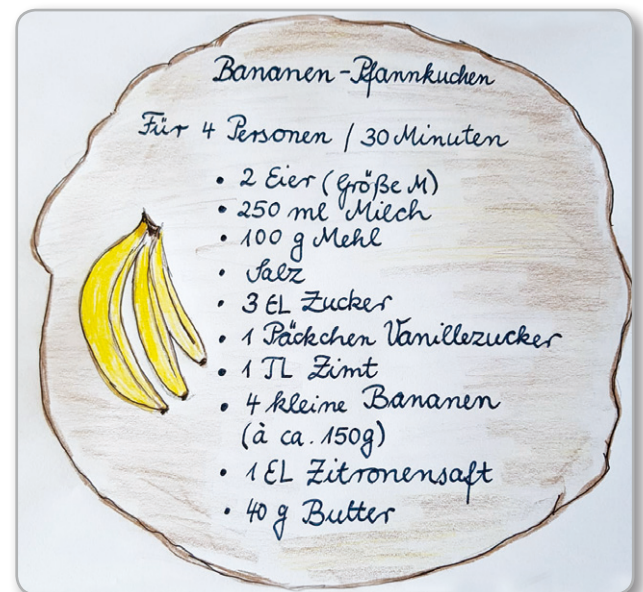 Bananen-Pfannkuchen
Für 4 Personen / 30 Minuten
• 2 Eier (Größe M)
• 250 ml Milch
• 100 g Mehl
• Salz
• 3 EL Zucker
• 1 Päckchen Vanillezucker
• 1 TL Zimt
• 4 kleine Bananen
(à ca. 150g)
• 1 EL Zitronensaft
• 40 g Butter